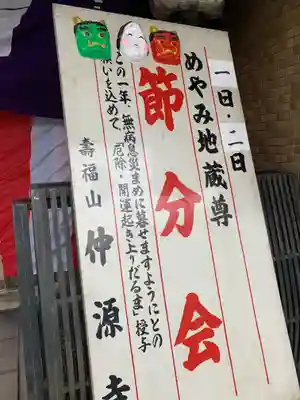 一日・二日
めやみ地蔵尊
節分会
この一年、無病息災まめに暮せますようにとの
願いを込めて、「厄除・開運起き上りだるま」授与
壽福山 仲源寺